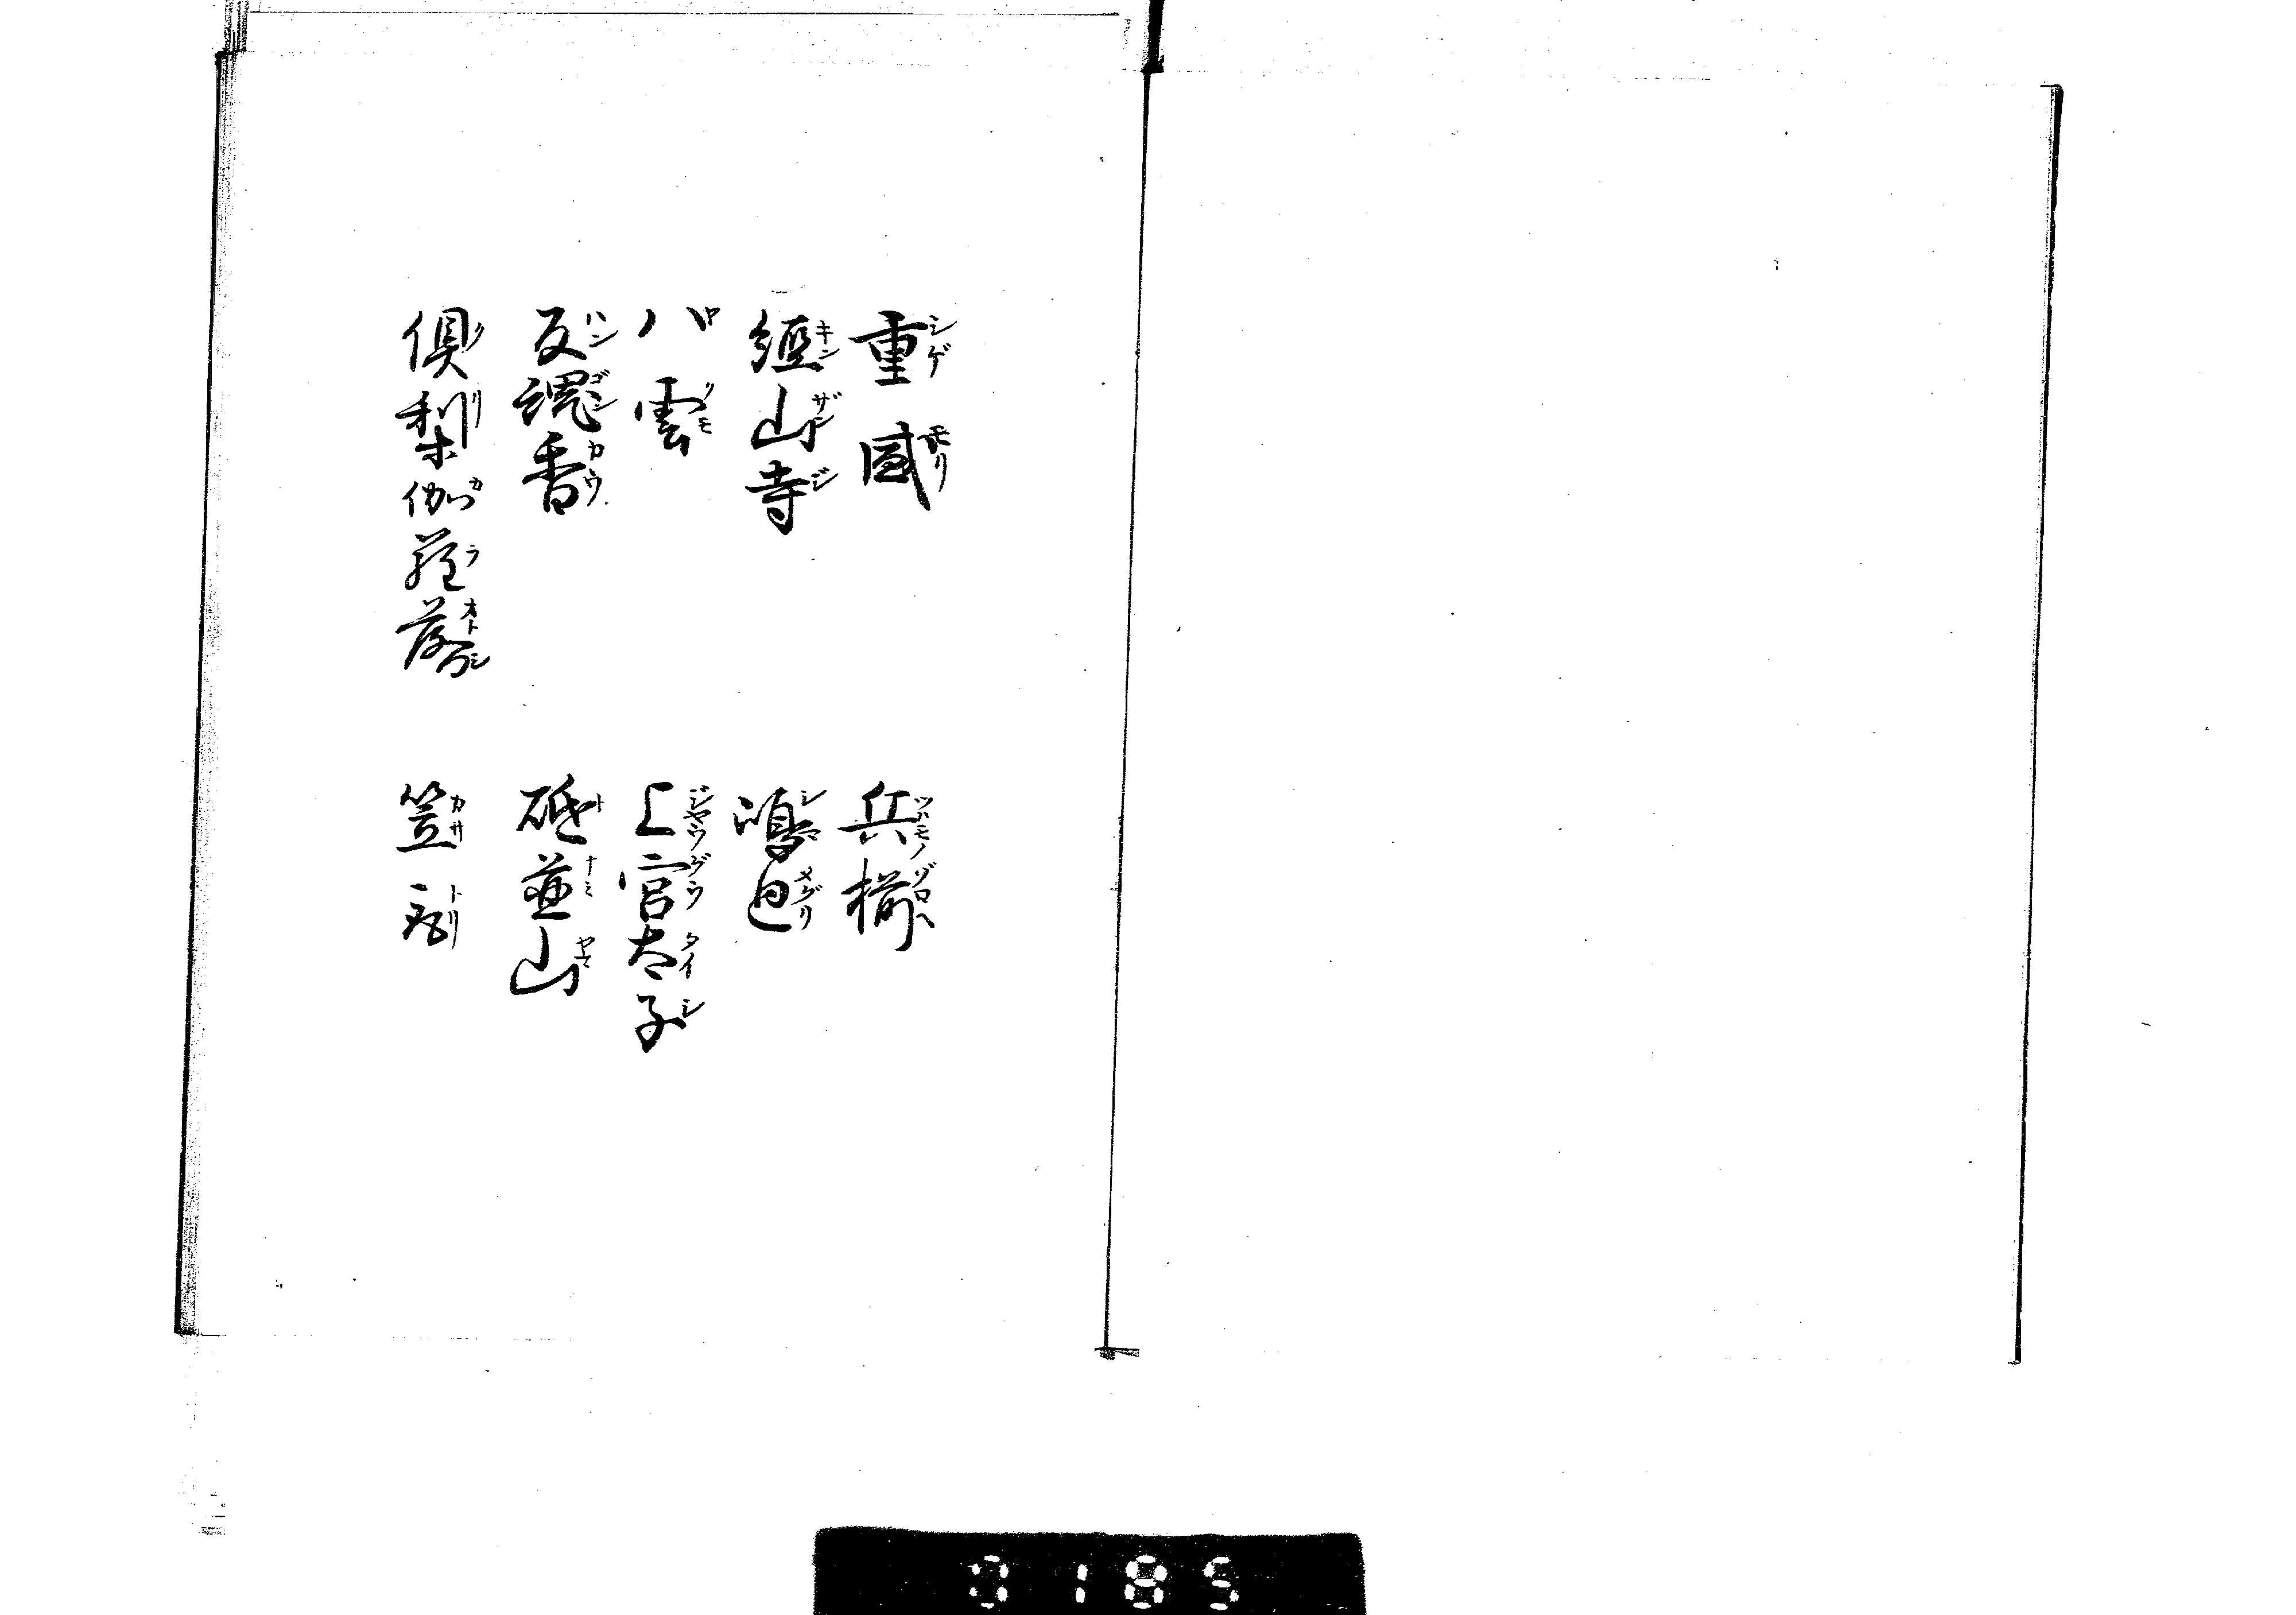 重盛 兵揃
シゲ モリ ツハモノ ゾロヘ
經山寺 嶋廻
キン ザン ジ シマ メグリ
八雲 上宮太子
ヤ クモ ジヤウ グウ タイ シ
反魂香 砥並山
ハン ゴン カウ ト ナミ ヤマ
倶梨伽羅落 笠取
ク リ カ ラ オトシ カサ トリ